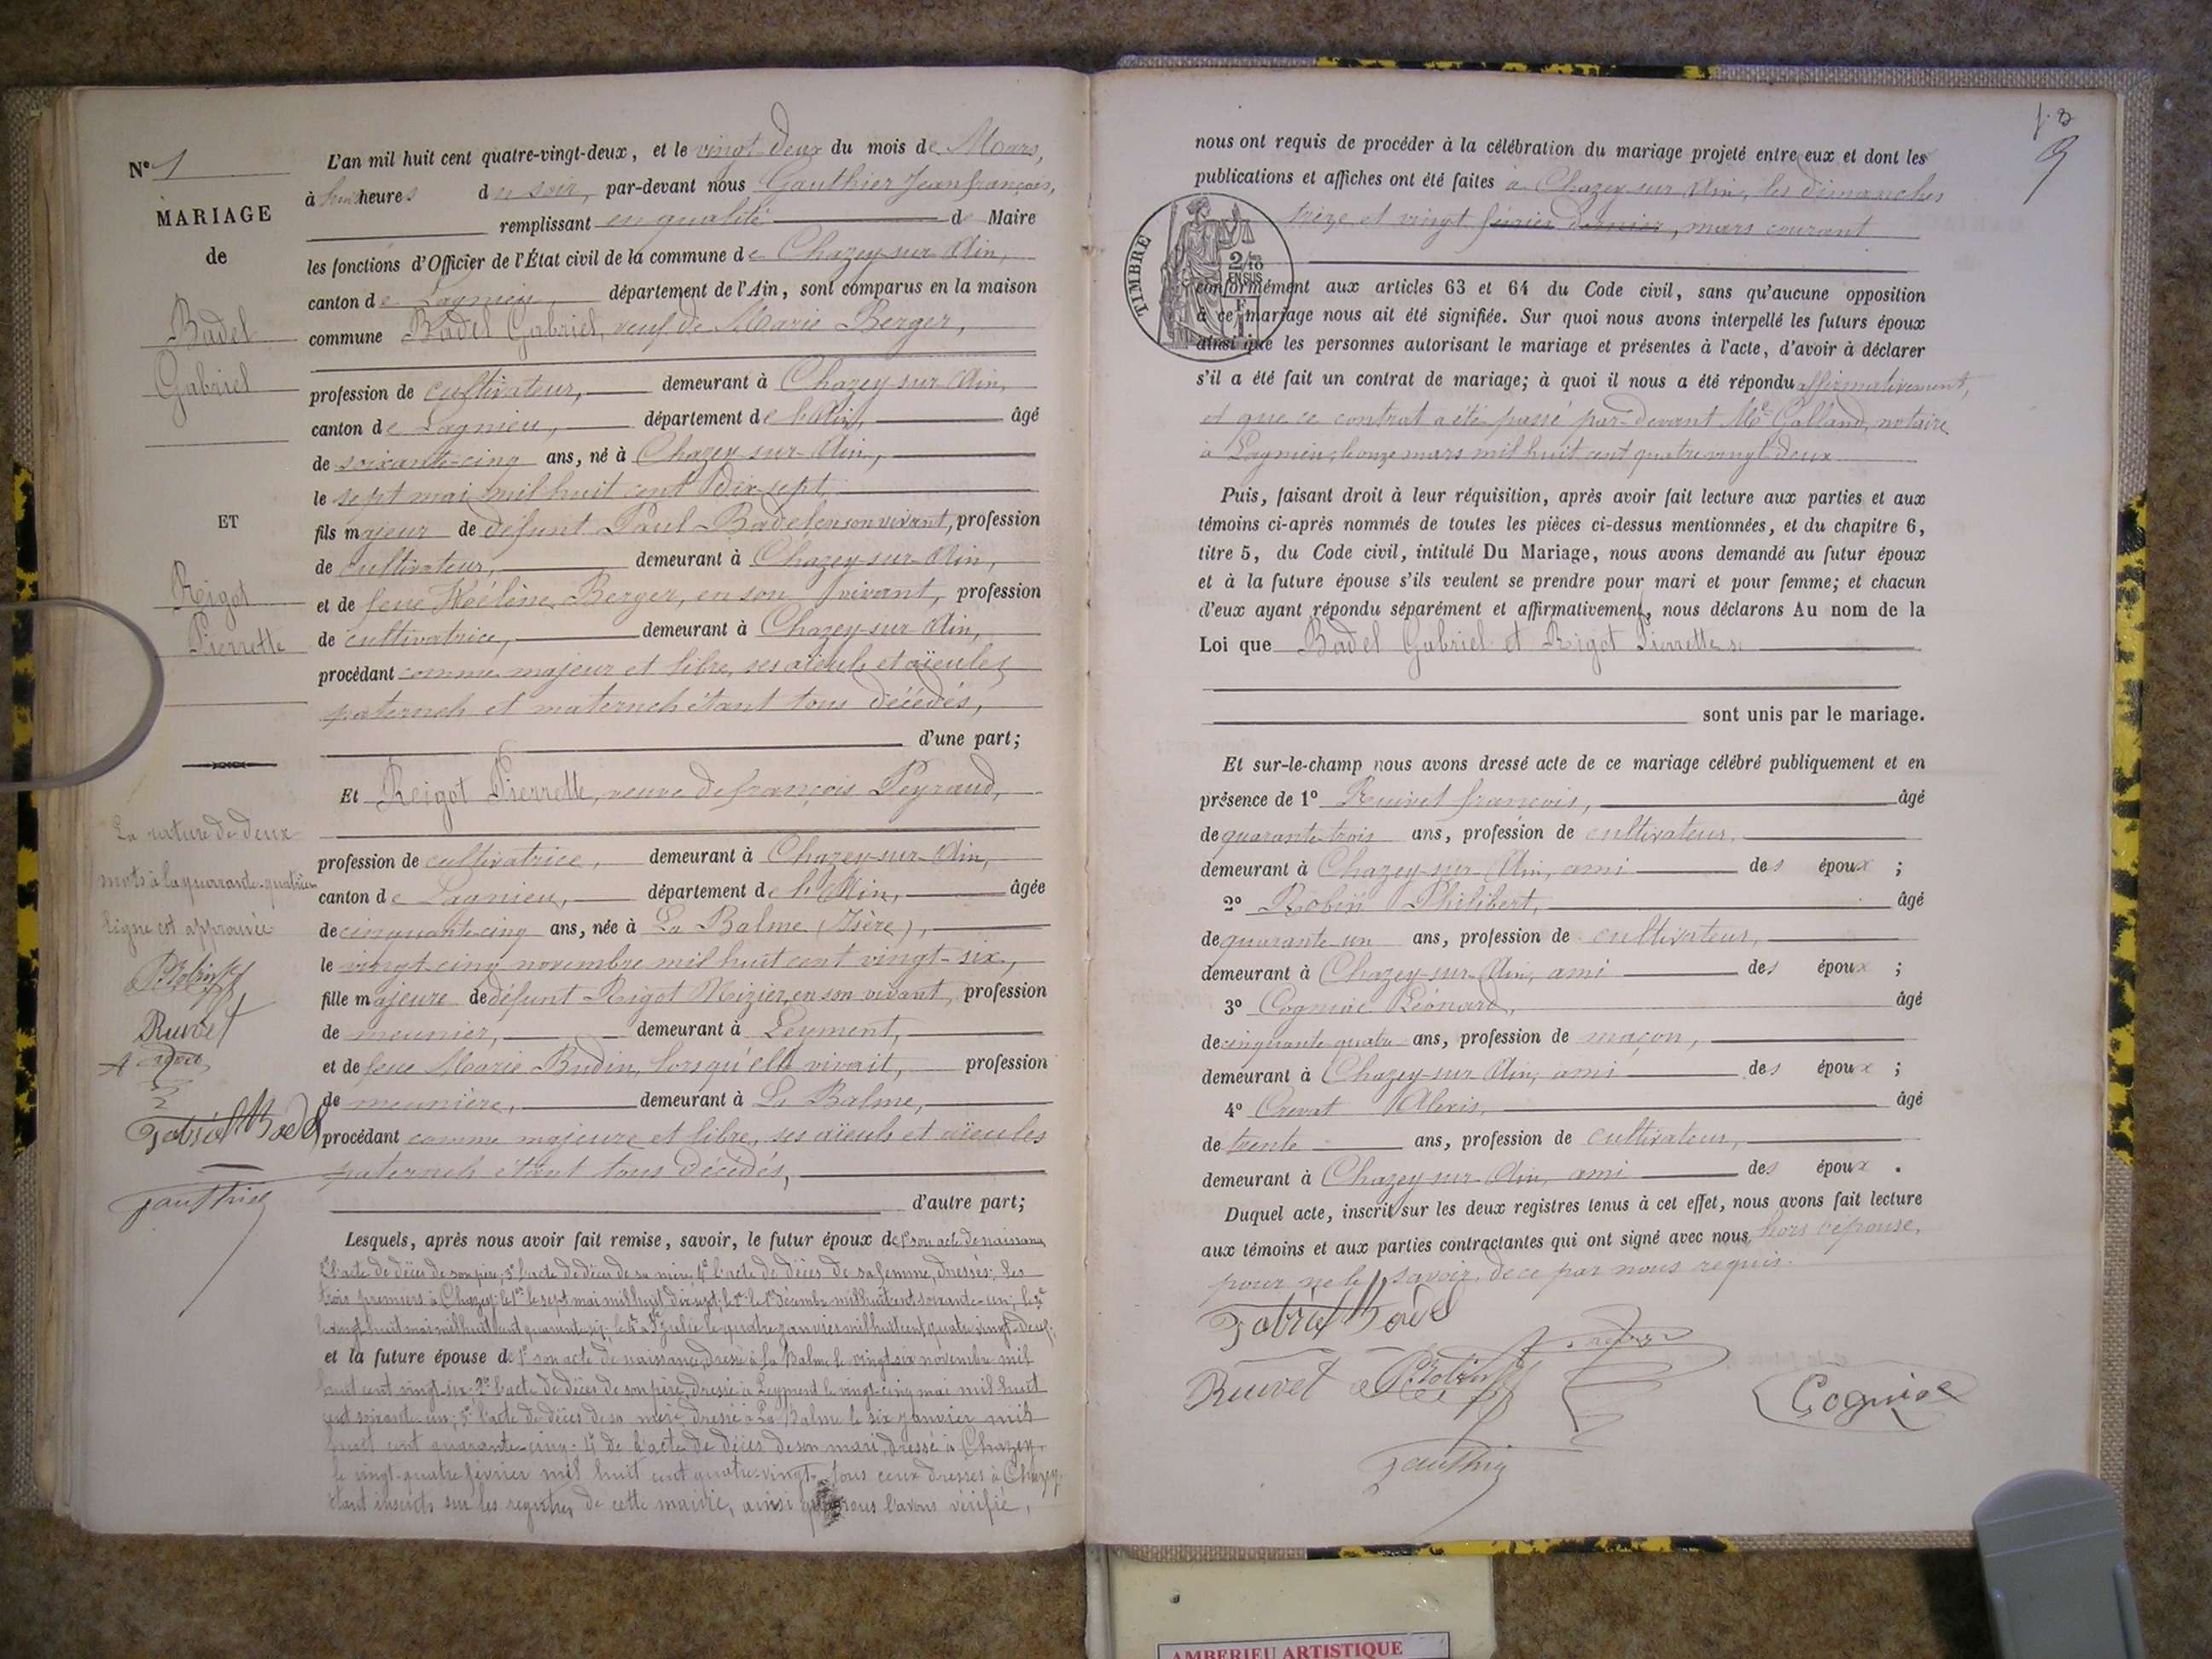 N° 1
MARIAGE
de
Badel
Gabriel
ET
Rigot
Pierrette
La rature de deux
mots à la quarante-quatrième
ligne est approuvée
Ruivet
Gabriel Badel
Gauthier
L'an mil huit cent quatre-vingt-deux, et le vingt deux du mois de Mars,
à huit heures du soir, par-devant nous Gauthier Jean françois,
remplissant en qualité de Maire
les fonctions d'Officier de l'État civil de la commune de Chazey-sur-Ain,
canton de Lagnieu, département de l'Ain, sont comparus en la maison
commune Badel Gabriel, veuf de Marie Berger,
profession de cultivateur, demeurant à Chazey-sur-Ain,
canton de Lagnieu, département de l'Ain, âgé
de soixante-cinq ans, né à Chazey-sur-Ain,
le sept mai mil huit cent dix-sept
fils majeur de défunt Paul Badel en son vivant, profession
de cultivateur, demeurant à Chazey-sur-Ain,
et de feue Hélène Berger, en son vivant, profession
de cultivatrice, demeurant à Chazey-sur-Ain,
procédant comme majeur et libre, ses aïeuls et aïeules
paternels et maternels étant tous décédés,
d'une part;
Et Reigot Pierrette, veuve de françois Peyraud,
profession de cultivatrice, demeurant à Chazey-sur-Ain,
canton de Lagnieu, département de l'Ain, âgée
de cinquante-cinq ans, née à La Balme (Isère),
le vingt-cinq novembre mil huit cent vingt-six,
fille majeure de défunt Rigot Nizier, en son vivant, profession
de meunier, demeurant à Leyment,
et de feue Marie Budin, lorsqu'elle vivait, profession
de meunière, demeurant à La Balme,
procédant comme majeure et libre, ses aïeuls et aïeules
paternels étant tous décédés,
d'autre part;
Lesquels, après nous avoir fait remise, savoir, le futur époux de 1° son acte de naissance
2° l'acte de décès de son père; 3° l'acte de décès de sa mère; 4° l'acte de décès de sa femme, dressés: les
trois premiers à Chazey: le 1er le sept mai mil huit dix-sept; le 2e le 1er Décembre mil huit cent soixante-un; le 3e
le vingt huit mai mil huit cent quarante-six; le 4e à St Julie le quatre janvier mil huit cent quatre vingt-deux;
et la future épouse de 1° son acte de naissance, dressé à la Balme le vingt six novembre mil
huit cent vingt-six. 2° l'acte de décès de son père, dressé à Leyment le vingt-cinq mai mil huit
cent soixante-un; 3° l'acte de décès de sa mère, dressé à La Balme le six janvier mil
huit cent quarante-cinq. 4° de l'acte de décès de son mari, dressé à Chazey
le vingt-quatre février mil huit cent quatre-vingt. Tous ceux dressés à Chazey
étant inscrits sur les registres de cette mairie, ainsi que nous l'avons vérifié,
9
nous ont requis de procéder à la célébration du mariage projeté entre eux et dont les
publications et affiches ont été faites à Chazey-sur-Ain, les dimanches
treize et vingt février dernier, mars courant
TIMBRE
2/10
EN SUS
conformément aux articles 63 et 64 du Code civil, sans qu'aucune opposition
à ce mariage nous ait été signifiée. Sur quoi nous avons interpellé les futurs époux
ainsi que les personnes autorisant le mariage et présentes à l'acte, d'avoir à déclarer
s'il a été fait un contrat de mariage; à quoi il nous a été répondu affirmativement,
et que ce contrat a été passé par-devant Me Galland, notaire
à Lagnieu, le onze mars mil huit cent quatre vingt-deux
Puis, faisant droit à leur réquisition, après avoir fait lecture aux parties et aux
témoins ci-après nommés de toutes les pièces ci-dessus mentionnées, et du chapitre 6,
titre 5, du Code civil, intitulé Du Mariage, nous avons demandé au futur époux
et à la future épouse s'ils veulent se prendre pour mari et pour femme; et chacun
d'eux ayant répondu séparément et affirmativement, nous déclarons Au nom de la
Loi que Badel Gabriel et Rigot Pierrette
sont unis par le mariage.
Et sur-le-champ nous avons dressé acte de ce mariage célébré publiquement et en
présence de 1° Ruivet françois, âgé
de quarante-trois ans, profession de cultivateur,
demeurant à Chazey-sur-Ain, ami des époux ;
2° Robin Philibert, âgé
de quarante-un ans, profession de cultivateur,
demeurant à Chazey-sur-Ain, ami des époux ;
3° Cogniac Léonard, âgé
de cinquante-quatre ans, profession de maçon,
demeurant à Chazey-sur-Ain, ami des époux ;
4° Crevat Alexis, âgé
de trente ans, profession de cultivateur,
demeurant à Chazey-sur-Ain, ami des époux .
Duquel acte, inscrit sur les deux registres tenus à cet effet, nous avons fait lecture
aux témoins et aux parties contractantes qui ont signé avec nous, hors l'épouse,
pour ne le savoir, de ce par nous requis.
Gabriel Badel
Ruivet
Gauthier
AMBERIEU ARTISTIQUE